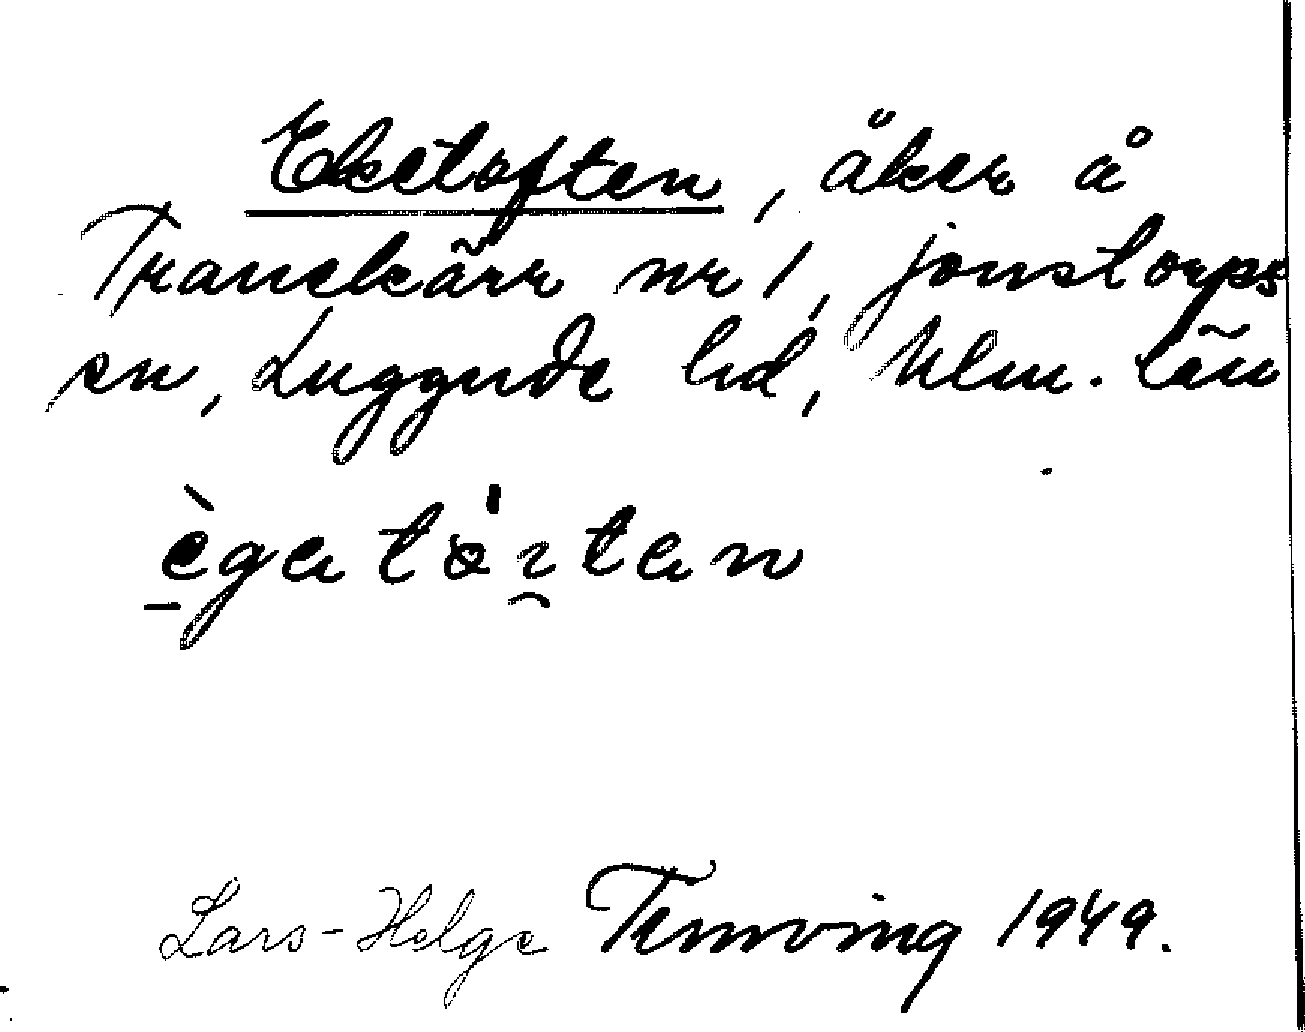 Eketoften, åker å
Tranekärr nr 1, Jonstorps
sn, Luggude hd, Mlm. län
ègatò́ɪtan
Lars-Helge Temving 1949.